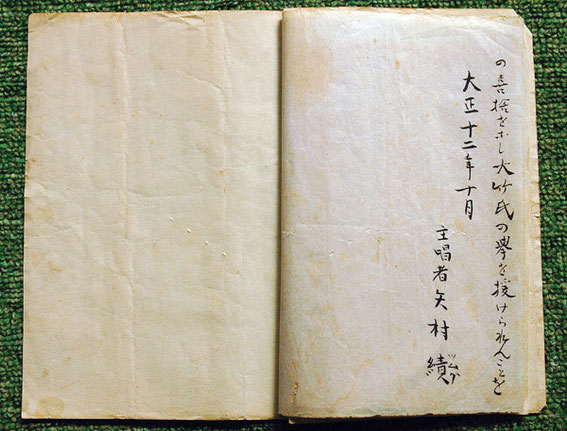 の喜捨を吝しまず大竹氏の擧を援けられんことを
大正十二年十月
主唱者矢村績
ツムグ